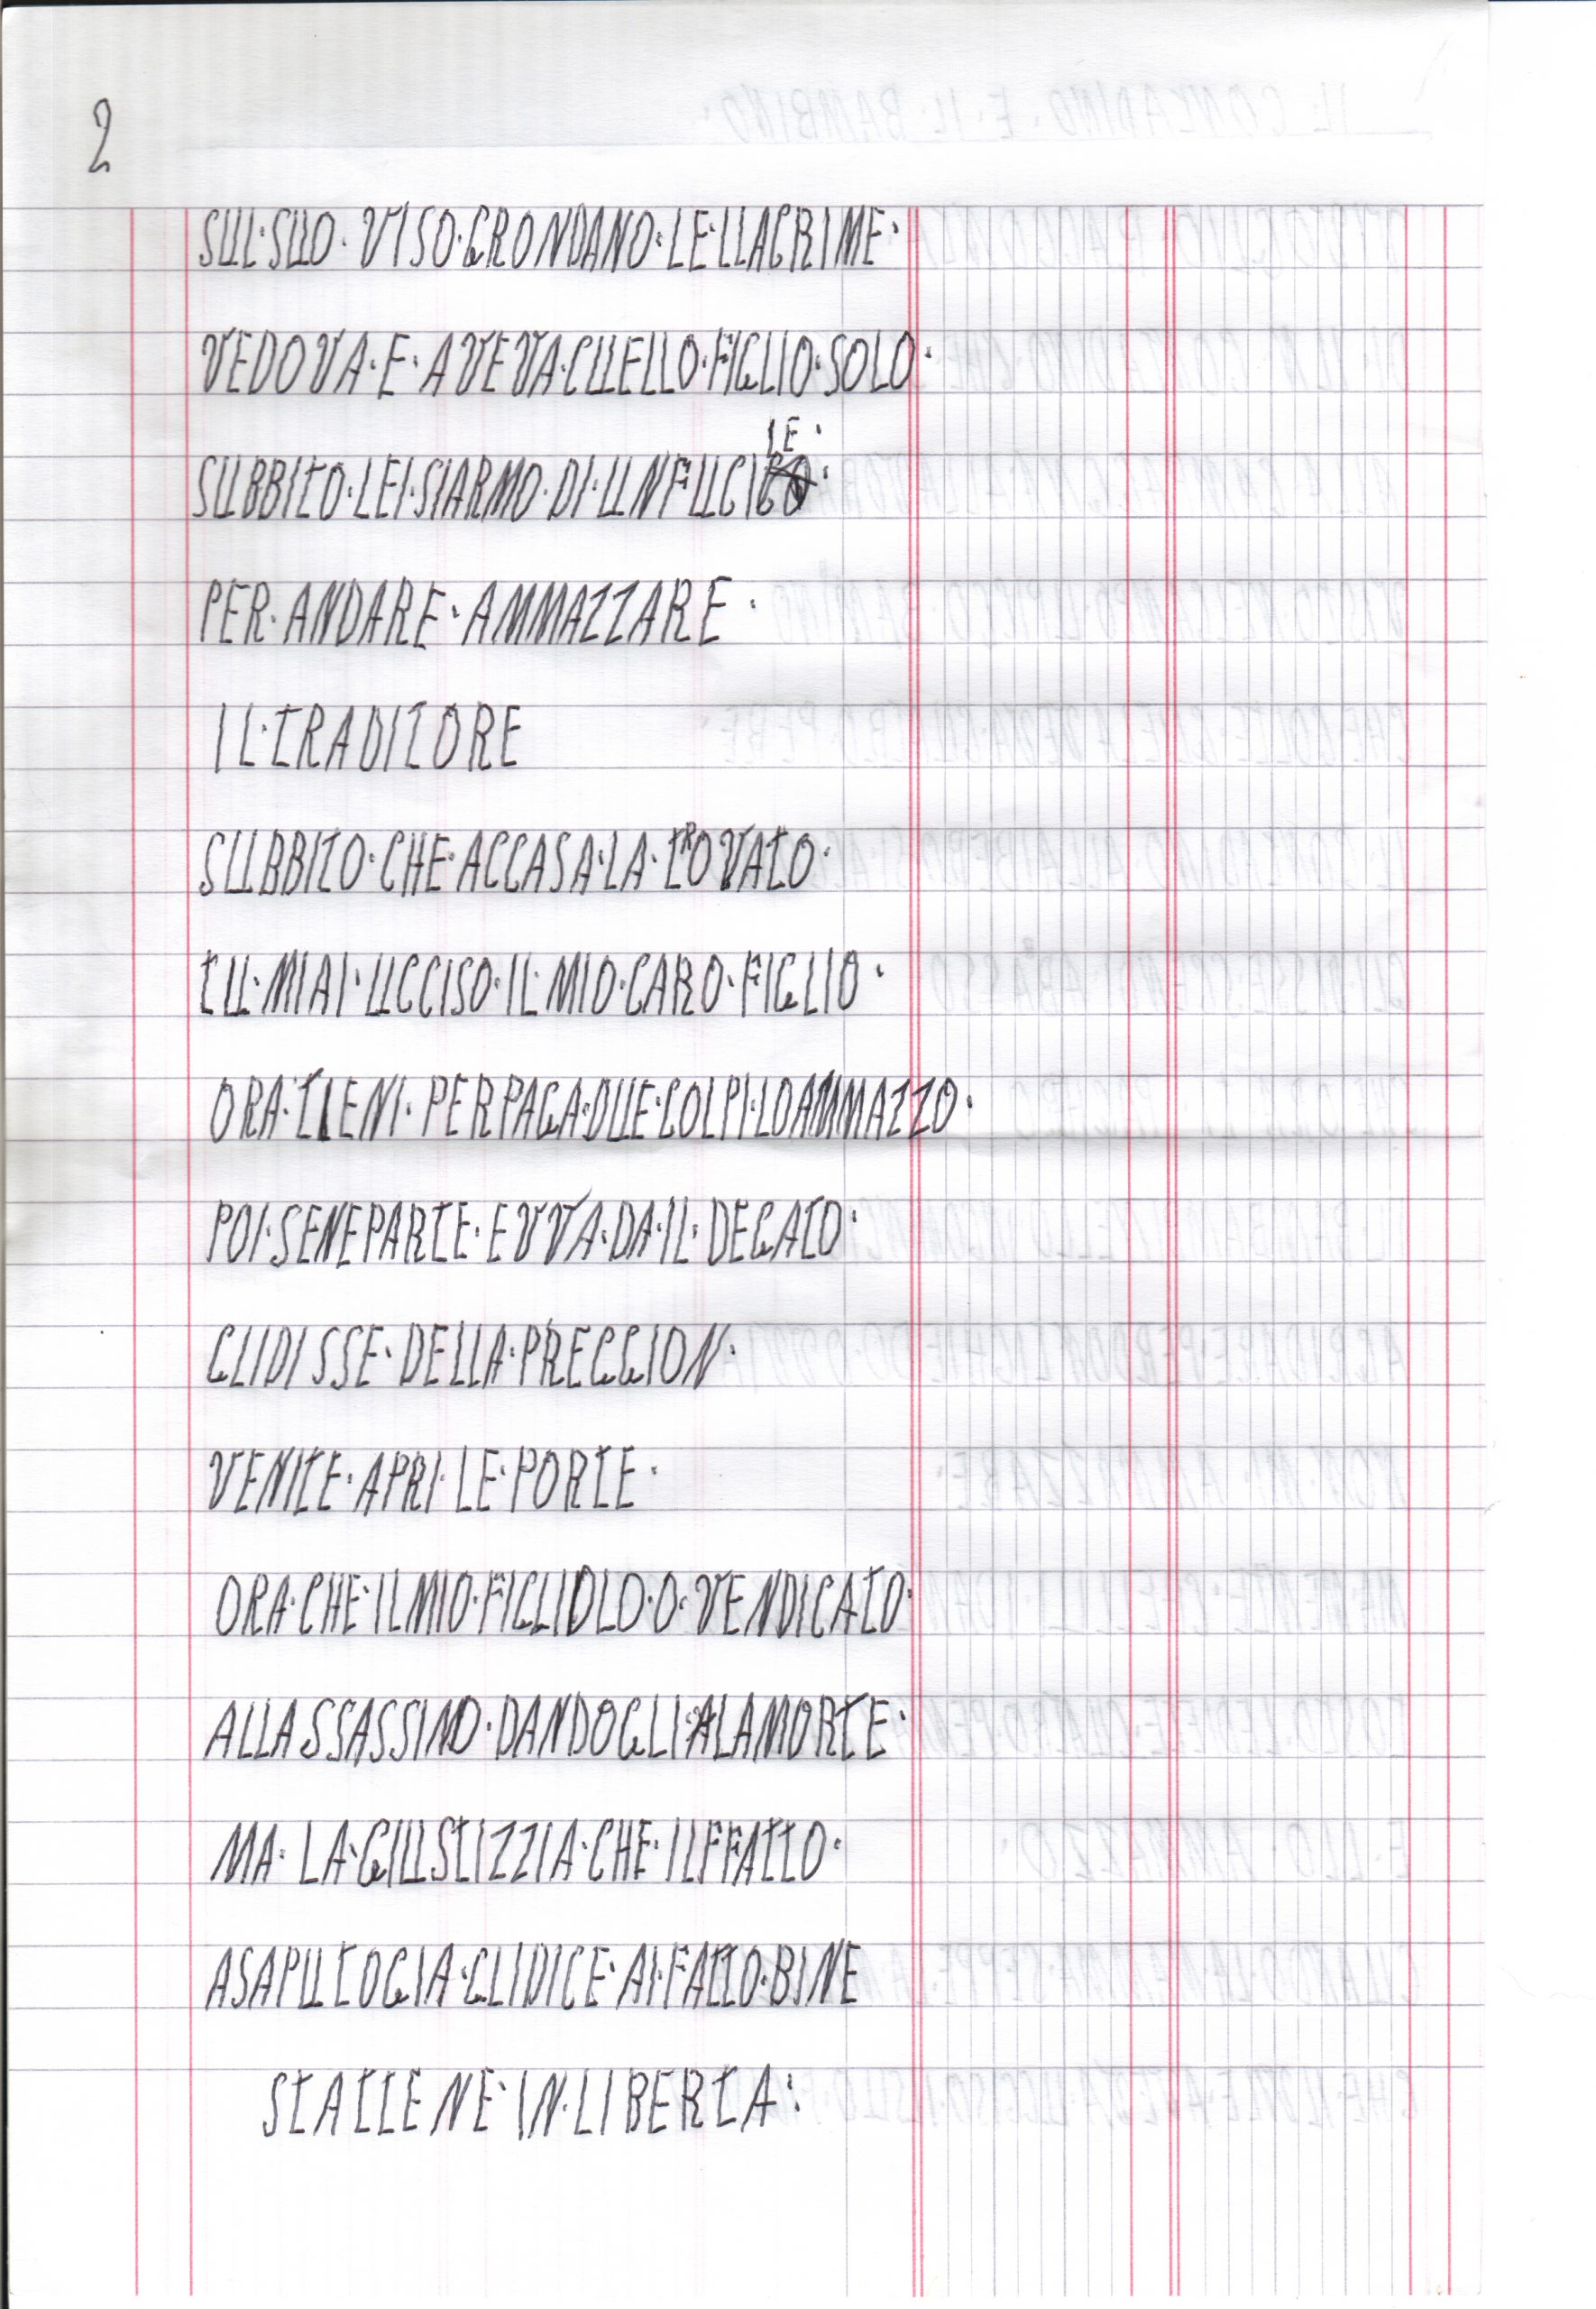 2
SUL·SUO·VISO·GRONDANO·LE·LLAGRIME·
VEDOVA·E·AVEVA·CUELLO·FIGLIO·SOLO·
SUBBITO·LEI·SIARMO·DI·UNFUCILE·
PER·ANDARE·AMMAZZARE·
IL·TRADITORE
SUBBITO·CHE·ACCASA·LA·TROVATO·
TU·MIAI·UCCISO·IL·MIO·CARO·FIGLIO·
ORA·TIENI·PERPAGA·DUE·COLPI·LOAMMAZZO·
POI·SENEPARTE·EVVA·DA·IL·DEGATO·
GLIDISSE·DELLA·PREGGION·
VENITE·APRI·LE·PORTE·
ORA·CHE·ILMIO·FIGLIOLO·O·VENDICATO·
ALLASSASSINO·DANDOGLI·LAMORTE·
MA·LA·GIUSTIZZIA·CHE·ILFFATTO·
ASAPUTOGIA·GLIDICE·AI·FATTO·BINE
STATTENE·IN·LIBERTA: